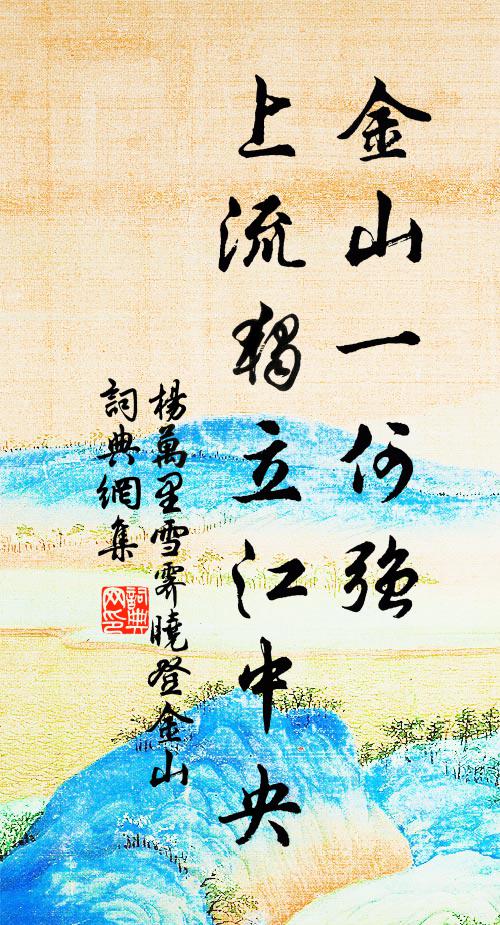 金山一何強
上流獨立江中央
楊萬里雪霽曉登金山
詞典網集
詞典
网印